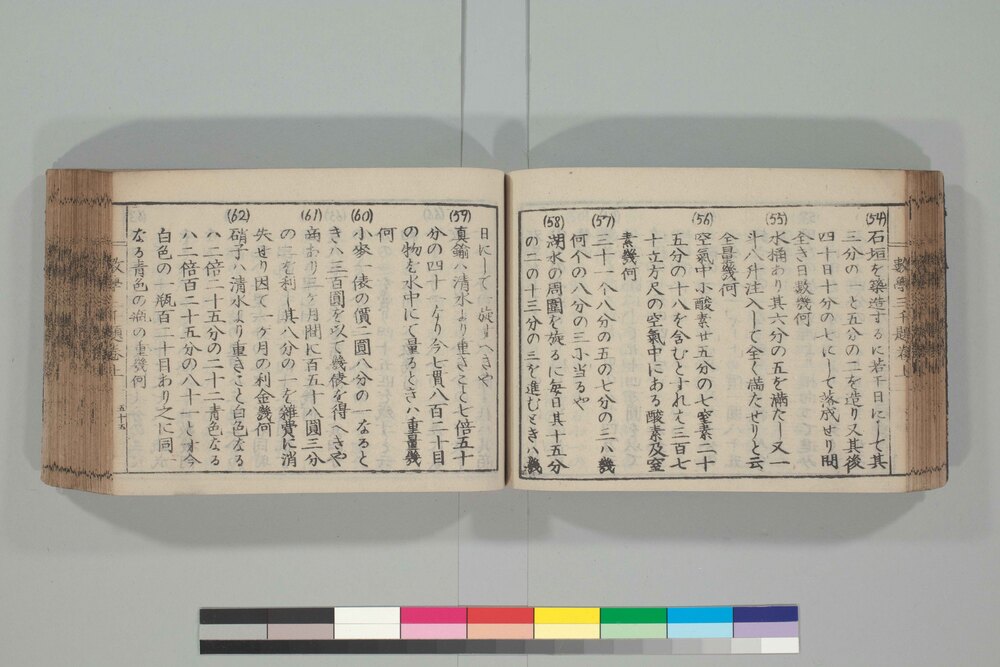 (54)
石垣を築造するに若干日にして其
三分の一と五分の二を造り又其後
四十日十分の七にして落成せり問
全き日数幾何
(55)
水桶あり其六分の五を満たし又一
斗八升注入して全く満たせりと云
全量幾何
(56)
空氣中小酸素廿五分の七窒素二十
五分の十八を含むとすれハ三百七
十立方尺の空氣中にある酸素及窒
素幾何
(57)
三十一个八分の五の七分の三ハ幾
何个の八分の三小当るや
(58)
湖水の周圍を旋るに毎日其十五分
の二の十三分の三を進むときハ幾
日にして一旋すへきや
(59)
真鍮ハ清水より重きこと七倍五十
分の四十一なり今七貫八百二十目
の物を水中にて量るときハ重量幾
何
(60)
小麥一俵の價二圓八分の一なると
きハ三百圓を以て幾俵を得へきや
(61)
商あり三ヶ月間に百五十八圓三分
の二を利し其八分の一を雑費に消
失せり因て一ヶ月の利金幾何
(62)
硝子ハ清水より重きこと白色なる
ハ二倍二十五分の二十二青色なる
ハ二倍百二十五分の八十一とす今
白色の一瓶百二十目あり之に同
なる青色の瓶の重幾何
五十五